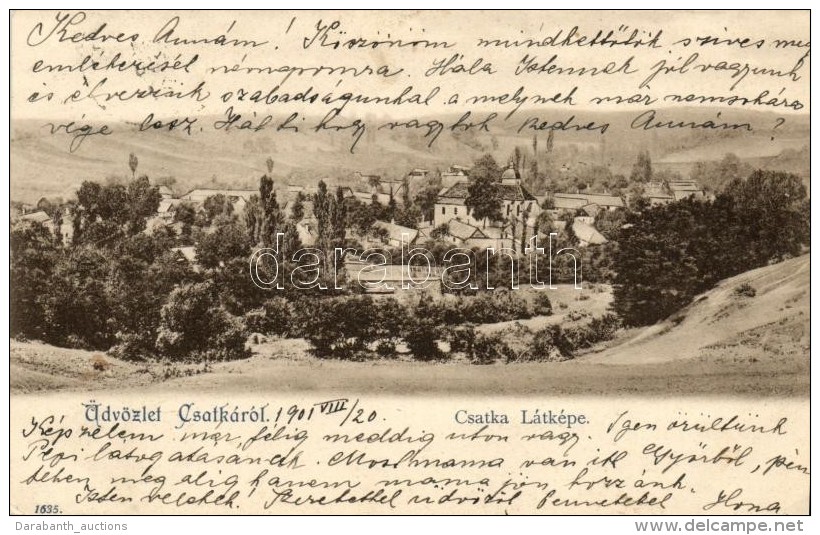 Kedves Annám! Köszönöm mindkettőtök szives meg
emlékezését névnapomra. Hála Istennek jól vagyunk
és élvezzük szabadságunkat a melynek már nemsokára
vége lesz. Hát ti hogy vagytok kedves Annám?
darabanth
Üdvözlet Csatkáról. 1901 VIII/20.
Csatka Látképe.
Képzelem már, félig meddig uton vagy. Igen örültünk
Pepi látogatásának. mama van itt Győrből, pén
teken meg alig hanem mama jön hozzánk.
Isten veletek! Szeretettel üdvözöl Ilona
1635.
Darabanth_auctions